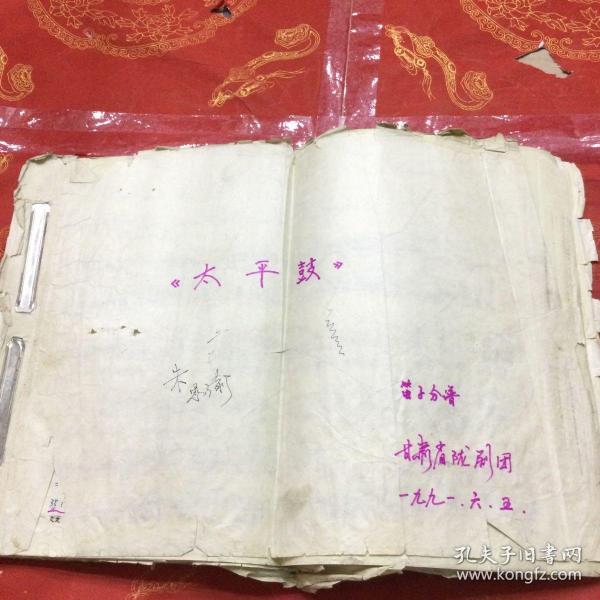 《太平鼓》
笛子分谱
甘肃省陇剧团
一九九一.六.五.
孔夫子旧书网
www.kongfz.com